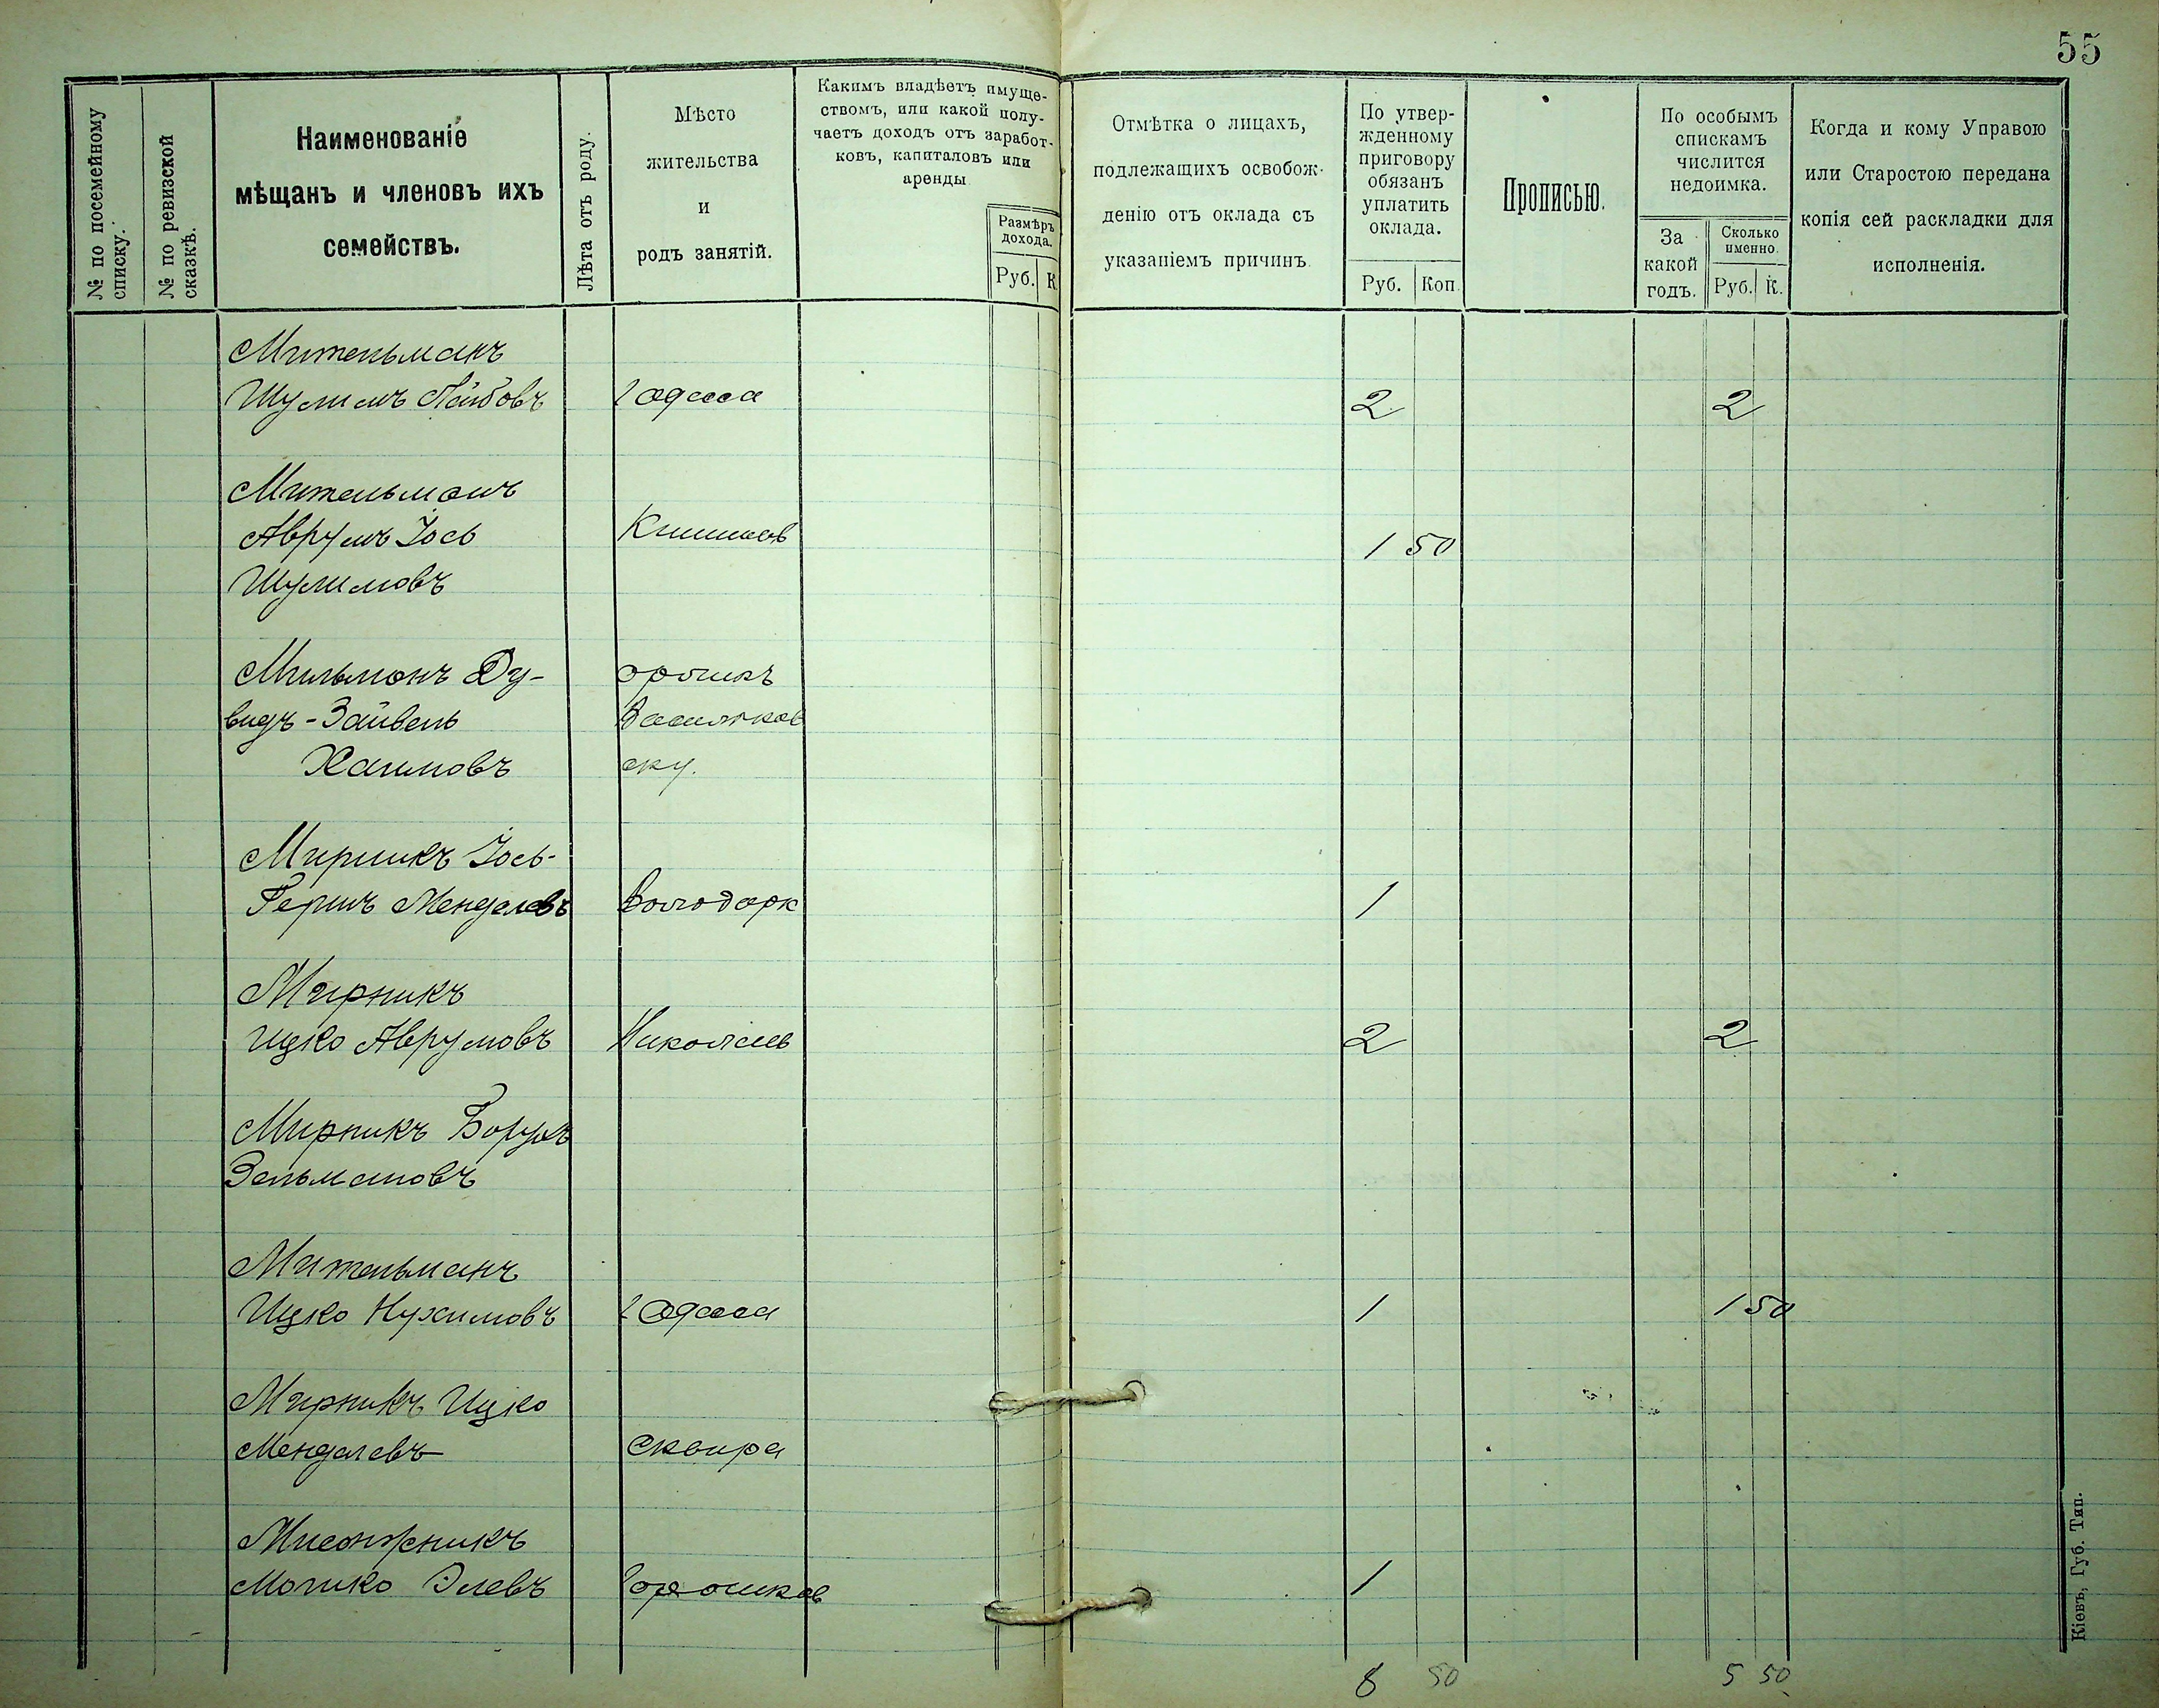 55
№ по посемейному списку.
№ по ревизской сказкѣ.
Наименованіе
мѣщанъ и членовъ ихъ
семействъ.
Лѣта отъ роду.
Мѣсто
жительства
и
родъ занятій.
Какимъ владѣетъ имуще-
ствомъ, или какой полу-
чаетъ доходъ отъ заработ-
ковъ, капиталовъ или
аренды
Размѣръ
дохода.
Руб. К
Отмѣтка о лицахъ,
подлежащихъ освобож-
денію отъ оклада съ
указаніемъ причинъ
По утвер-
жденному
приговору
обязанъ
уплатить
оклада.
Руб. Коп.
Прописью.
По особымъ
спискамъ
числится
недоимка.
За
какой
годъ.
Сколько
именно.
Руб. К.
Когда и кому Управою
или Старостою передана
копія сей раскладки для
исполненія.
Мительманъ
Шулимъ Лейбовъ г Одесса 2 2
Мительманъ
Аврумъ Іось Кишинев 1 50
Шулимовъ
Мильманъ Ду-
видъ-Зайвель Васильков
Хаимовъ ску.
Мирникъ Іось-
Гершъ Менделевъ Володарк 1
Мирникъ
Ицко Аврумовъ Николаев 2 2
Мирникъ Борухъ
Зельмановъ
Мительманъ
Ицко Нухимовъ г Одесса 1 1 50
Мирникъ Ицко
Менделевъ Сквира
Мисожникъ
Мошко Элевъ Горошков 1
8 50 5 50
Кіевъ, Губ. Тип.